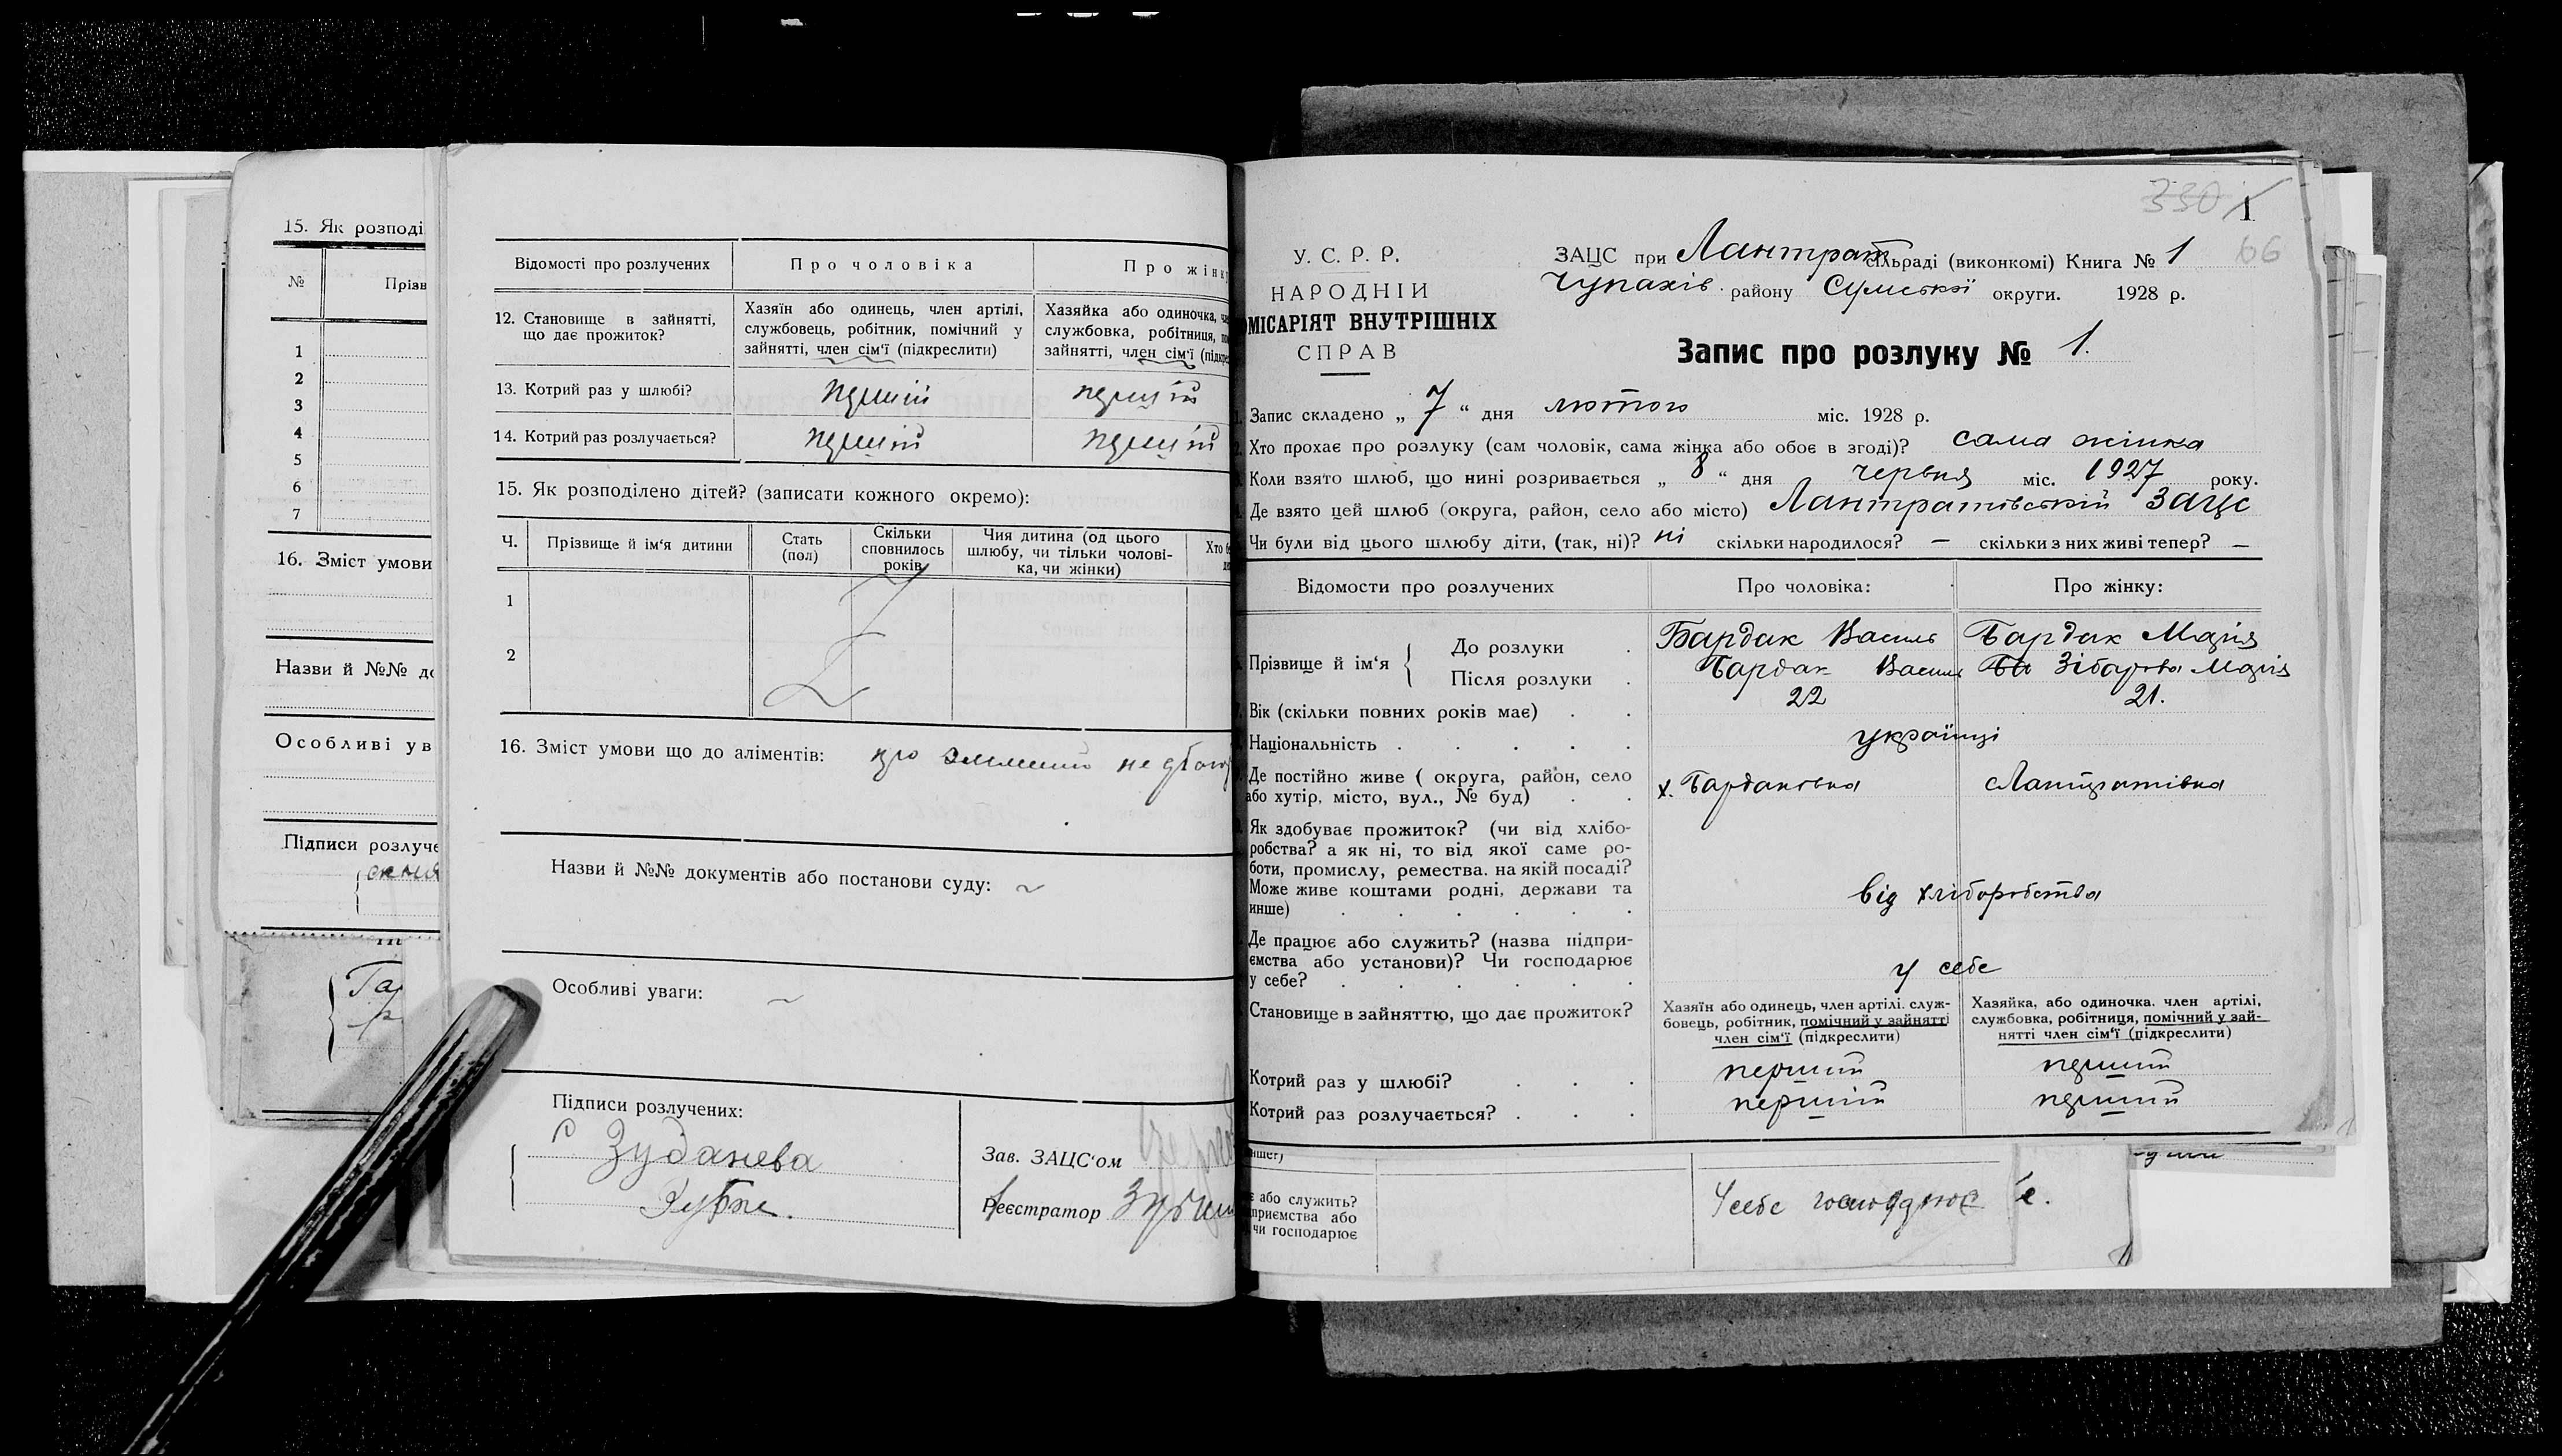 15. Як розподі
№
Прізв
1
2
3
4
5
6
7
16. Зміст умови
Назви й №№ до
Особливі ув
Підписи розлуче
Відомості про розлучених
Про чоловіка
Про жінк
12. Становище в зайнятті,
що дає прожиток?
Хазяїн або одинець, член артілі,
службовець, робітник, помічний у
зайнятті, член сім'ї (підкреслити)
Хазяйка або одиночка,
службовка, робітниця,
зайнятті, член сім'ї
13. Котрий раз у шлюбі?
перший
перший
14. Котрий раз розлучається?
перший
перший
15. Як розподілено дітей? (записати кожного окремо):
Ч.
Прізвище й ім'я дитини
Стать
(пол)
Скільки
сповнилось
років
Чия дитина (од цього
шлюбу, чи тільки чолові-
ка, чи жінки)
Хто
1
2
16. Зміст умови що до аліментів: про
Назви й №№ документів або постанови суду: ~
Особливі уваги: ~
Підписи розлучених:
Зав. ЗАЦС'ом
Реєстратор
330 1
66
У. С. Р. Р.
НАРОДНІЙ
ОМІСАРІЯТ ВНУТРІШНІХ
СПРАВ
ЗАЦС при Лантрат сільраді (виконкомі) Книга № 1
Чупахів. району Сумської округи. 1928 р.
Запис про розлуку № 1.
Запис складено „ 7 “ дня лютого міс. 1928 р.
Хто прохає про розлуку (сам чоловік, сама жінка або обоє в згоді)? сама жінка
Коли взято шлюб, що нині розривається „ 8 “ дня червня міс. 1927 року.
Де взято цей шлюб (округа, район, село або місто) Лантратівський ЗАЦС
Чи були від цього шлюбу діти, (так, ні)? ні скільки народилося? — скільки з них живі тепер? —
Відомости про розлучених
Про чоловіка:
Про жінку:
Прізвище й ім'я
До розлуки
Бардак Василь
Бардак Марія
Після розлуки
Бардак Василь
Ба Зібарова Марія
Вік (скільки повних років має)
22
21.
Національність
українці
Де постійно живе ( округа, район, село
або хутір, місто, вул., № буд)
х. Бардаківка
Лантратівка
Як здобуває прожиток? (чи від хлібо-
робства? а як ні, то від якої саме ро-
боти, промислу, ремества. на якій посаді?
Може живе коштами родні, держави та
инше)
від хліборобства
Де працює або служить? (назва підпри-
ємства або установи)? Чи господарює
у себе?
у себе
Становище в зайняттю, що дає прожиток?
Хазяїн або одинець, член артілі. служ-
бовець, робітник, помічний у зайнятті
член сім'ї (підкреслити)
Хазяйка, або одиночка. член артілі,
службовка, робітниця, помічний у зай-
нятті член сім'ї (підкреслити)
Котрий раз у шлюбі?
перший
перший
Котрий раз розлучається?
перший
перший
инше)
є або служить?
приємства або
чи господарює
У себе господарює